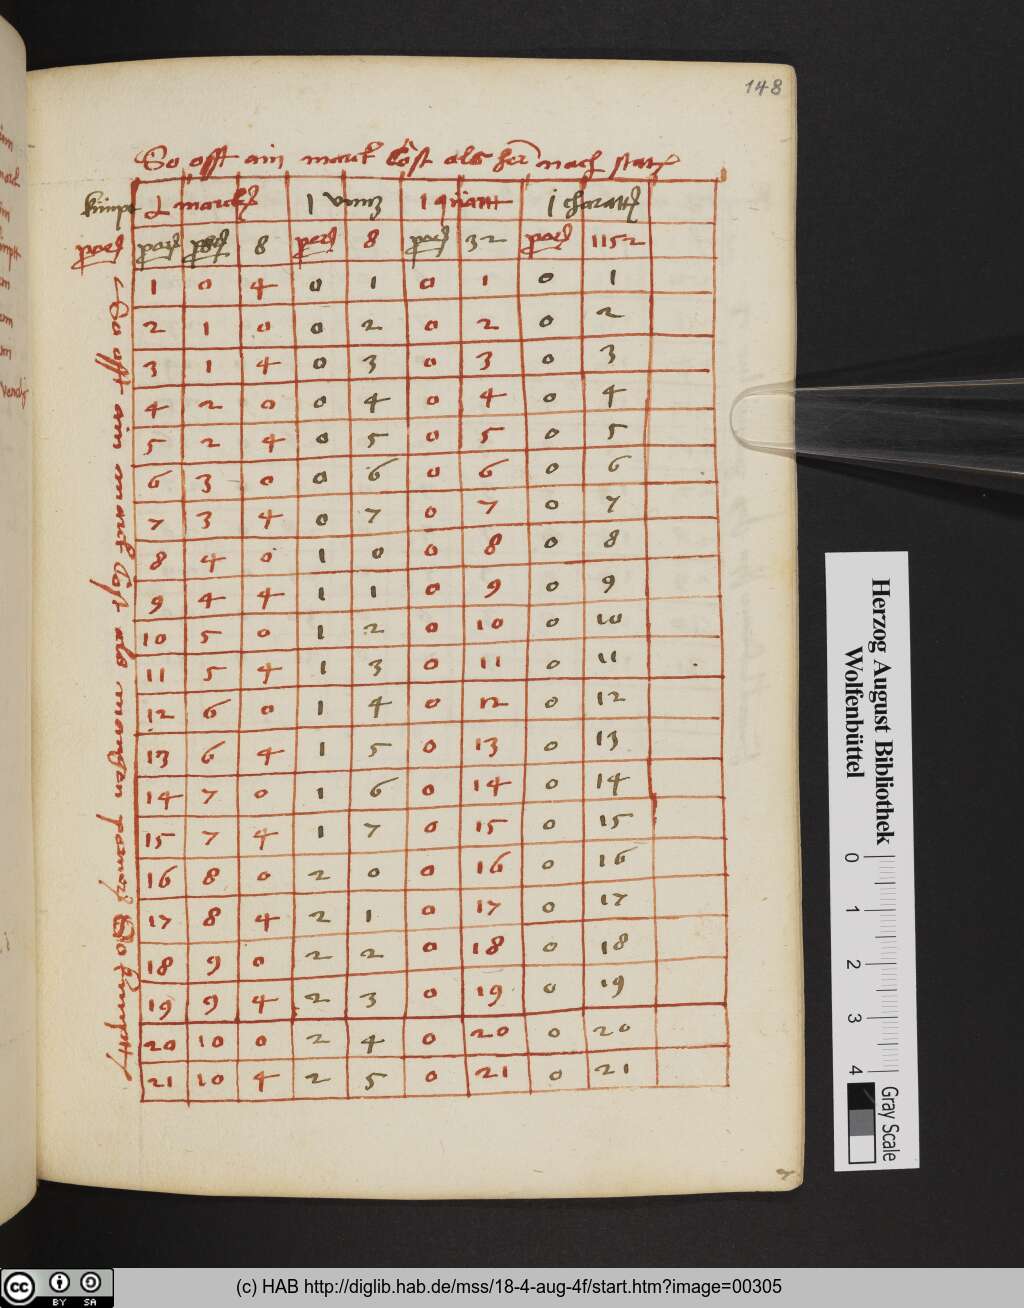 148
So offt ain marck Cost als her nach statz
kümpt ½ marckz 1 vnnz 1 quartt 1 charatt
8 8 32 1152
1 0 4 0 1 0 1 0 1
2 1 0 0 2 0 2 0 2
3 1 4 0 3 0 3 0 3
4 2 0 0 4 0 4 0 4
5 2 4 0 5 0 5 0 5
6 3 0 0 6 0 6 0 6
7 3 4 0 7 0 7 0 7
8 4 0 1 0 0 8 0 8
9 4 4 1 1 0 9 0 9
10 5 0 1 2 0 10 0 10
11 5 4 1 3 0 11 0 11
12 6 0 1 4 0 12 0 12
13 6 4 1 5 0 13 0 13
14 7 0 1 6 0 14 0 14
15 7 4 1 7 0 15 0 15
16 8 0 2 0 0 16 0 16
17 8 4 2 1 0 17 0 17
18 9 0 2 2 0 18 0 18
19 9 4 2 3 0 19 0 19
20 10 0 2 4 0 20 0 20
21 10 4 2 5 0 21 0 21
So offt ain marck Cost als So kumptt
Herzog August Bibliothek
Wolfenbüttel
0 1 2 3 4
Gray Scale
cc BY SA
(c) HAB http://diglib.hab.de/mss/18-4-aug-4f/start.htm?image=00305